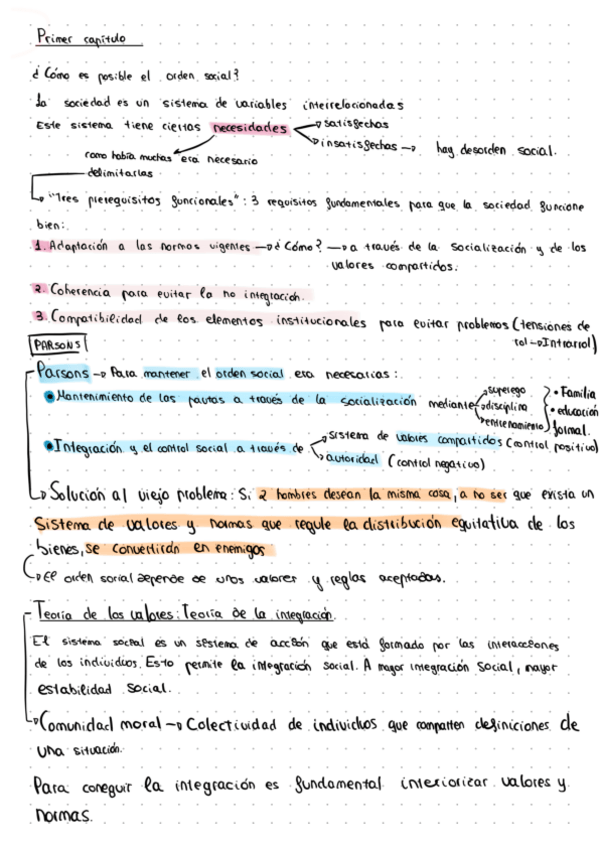 Primer capítulo
¿Cómo es posible el orden social?
La sociedad es un sistema de variables interrelacionadas
Este sistema tiene ciertas necesidades → satisfechas
→ insatisfechas → hay desorden social.
como había muchas era necesario
delimitarlas
→ "Tres prerequisitos funcionales": 3 requisitos fundamentales para que la sociedad funcione
bien:
1. Adaptación a las normas vigentes → ¿Cómo? → a través de la socialización y de los
valores compartidos.
2. Coherencia para evitar la no integración.
3. Compatibilidad de los elementos institucionales para evitar problemas (tensiones de
rol → Intrarrol)
PARSONS
Parsons → Para mantener el orden social era necesarias:
• Mantenimiento de las pautas a través de la socialización mediante → superego
→ disciplina
→ entrenamiento
• Familia
• educación
formal.
• Integración y el control social a través de → sistema de valores compartidos (control positivo)
→ autoridad (control negativo)
→ Solución al viejo problema: Si 2 hombres desean la misma cosa, a no ser que exista un
Sistema de valores y normas que regule la distribución equitativa de los
bienes, se convertirán en enemigos
→ El orden social depende de unos valores y reglas aceptadas.
Teoría de los valores: Teoría de la integración.
El sistema social es un sistema de acción que está formado por las interacciones
de los individuos. Esto permite la integración social. A mayor integración social, mayor
estabilidad social.
→ Comunidad moral → Colectividad de individuos que comparten definiciones de
una situación.
Para coneguir la integración es fundamental interiorizar valores y
normas.